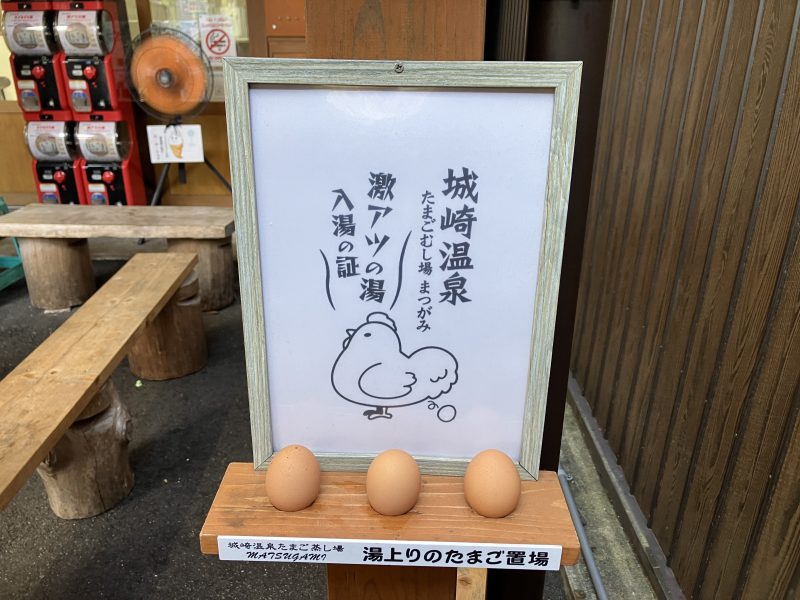 城崎温泉
たまごむし場 まつがみ
激アツの湯
入湯の証
城崎温泉たまご蒸し場
MATSUGAMI
湯上りのたまご置場